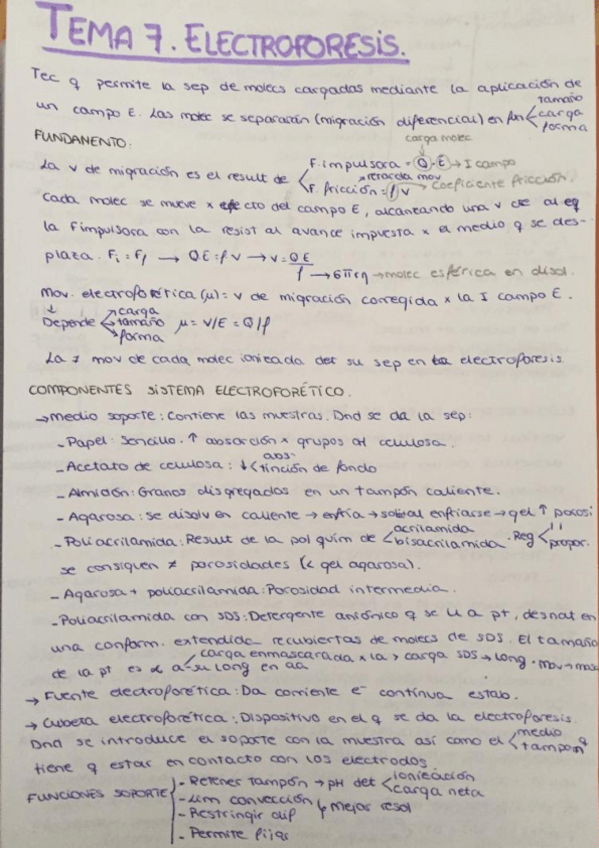 TEMA 7. ELECTROFORESIS.
Tec q permite la sep de molecs cargadas mediante la aplicación de
un campo E. Las molec se separarán (migración diferencial) en fon tamaño carga forma
FUNDAMENTO:
carga molec
La v de migración es el result de F. impulsora = Q·E → I campo
retarda mov
F. fricción = f v → coeficiente fricción.
Cada molec se mueve x efecto del campo E, alcanzando una v cte al eq
la F impulsora con la resist al avance impuesta x el medio q se des-
plaza. Fi = Ff → QE = f v → v = QE/f
→ 6πrη → molec esférica en disol.
Mov. electroforética (μ) = v de migración corregida x la I campo E.
Depende carga tamaño forma μ = V/E = Q/f
La ≠ mov de cada molec ionizada det su sep en la electroforesis.
COMPONENTES SISTEMA ELECTROFORÉTICO.
→ Medio soporte: Contiene las muestras. Dnd se da la sep:
- Papel: Sencillo. ↑ absorción x grupos OH celulosa.
- Acetato de celulosa: ↓ abs. tinción de fondo
- Almidón: Granos disgregados en un tampón caliente.
- Agarosa: se disolv en caliente → enfría → al enfriarse → gel ↑ porosi
- Poliacrilamida: Result de la pol quím de acrilamida bisacrilamida. Reg propor.
se consiguen ≠ porosidades (< gel agarosa).
- Agarosa + poliacrilamida: Porosidad intermedia.
- Poliacrilamida con SDS: Detergente aniónico q se U a pt, desnat en
una conform. extendida recubiertas de molecs de SDS. El tamaño
de la pt es α a su long en aa carga enmascarada x la > carga SDS → long · mov → mas
→ Fuente electroforética: Da corriente e⁻ continua estab.
→ Cubeta electroforética: Dispositivo en el q se da la electroforesis.
Dnd se introduce el soporte con la muestra así como el medio tampón q
tiene q estar en contacto con los electrodos.
FUNCIONES SOPORTE
- Retener tampón → pH det ionización carga neta
- Lim convección
- Restringir dif
mejor resol
- Permite fijar